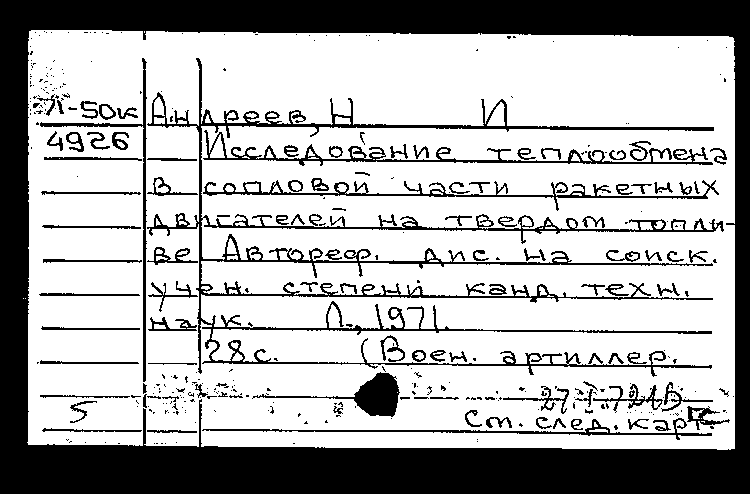 Л-50к Андреев, Н И
4926 Исследование теплообмена
в сопловой части ракетных
двигателей на твердом топли-
ве Автореф. дис. на соиск.
учен. степени канд. техн.
наук. Л., 1971.
28с. (Воен. артиллер.
27.I.72
5 См. след. карт.